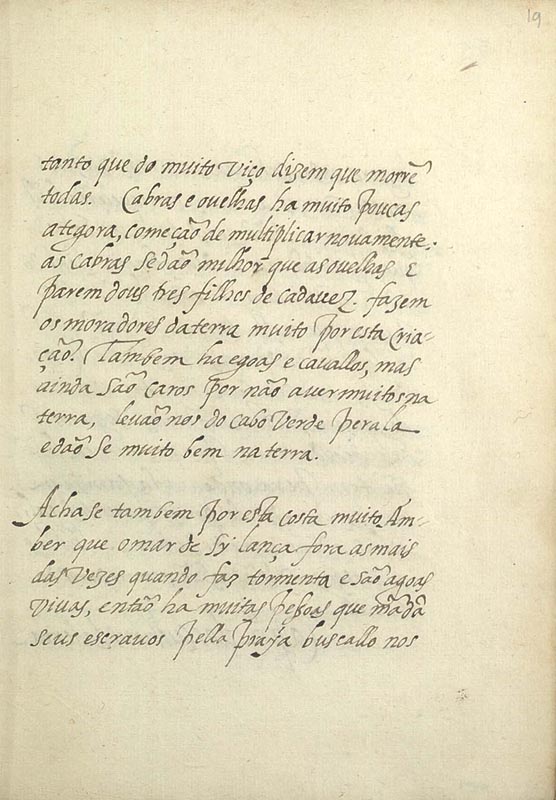 19
tanto que do muito viço dizem que morrẽ
todas. Cabras e ovelhas ha muito poucas
ategora, começão de multiplicar novamente:
as cabras se dão milhor que as ovelhas e
parem dous tres filhos de cada vez. fazem
os moradores da terra muito por esta cria-
ção. Tambem ha egoas e cavallos, mas
ainda são caros por não aver muitos na
terra, levão nos do cabo Verde pera la
e dão se muito bem na terra.
Acha se tambem por esta costa muito Am-
ber que o mar de sy lança fora as mais
das vezes quando faz tormenta e são agoas
vivas, então ha muitas pessoas que mãdã
seus escravos pella praya buscallo nos